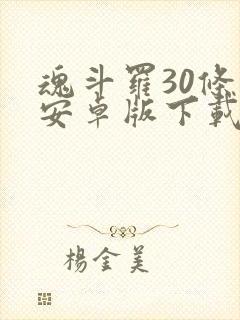 魂斗羅30條
安卓版下載
楊金美